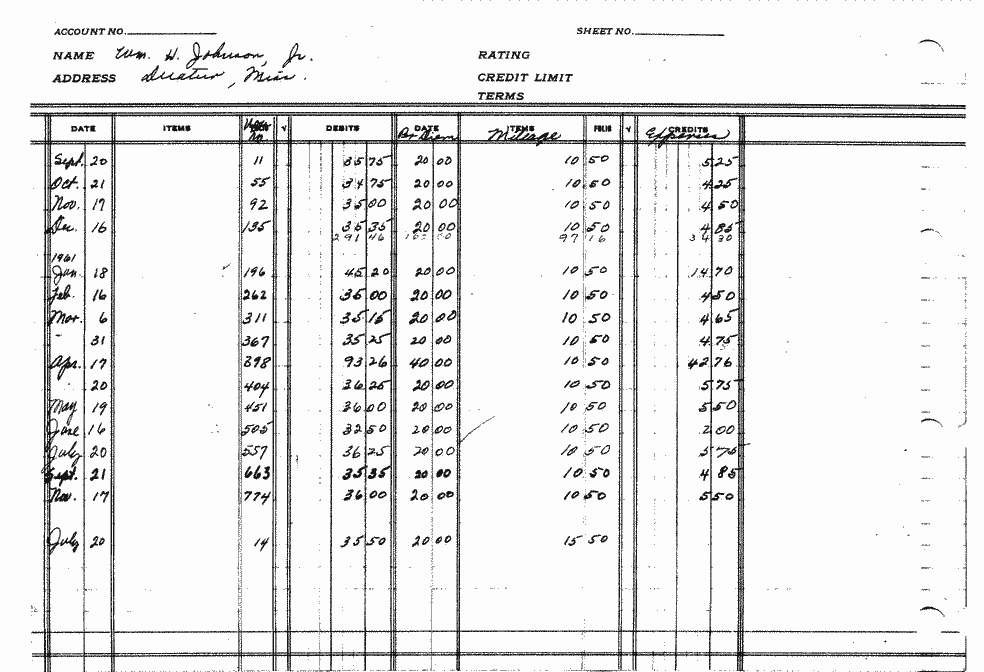 ACCOUNT NO. SHEET NO.
NAME Wm. H. Johnson, Jr. RATING
ADDRESS Decatur, Miss. CREDIT LIMIT
TERMS
DATE ITEMS No. √ DEBITS DATE Per Diem ITEMS Mileage FOLIO √ CREDITS Expenses
Sept. 20 11 35 75 20 00 10 50 5 25
Oct. 21 55 34 75 20 00 10 50 4 25
Nov. 17 92 35 00 20 00 10 50 4 50
Dec. 16 135 35 35 20 00 10 50 4 85
291 46 97 16 34 30
1961
Jan 18 196 45 20 20 00 10 50 14 70
Feb. 16 262 35 00 20 00 10 50 4 50
Mar. 6 311 35 15 20 00 10 50 4 65
" 31 367 35 25 20 00 10 50 4 75
Apr. 17 398 93 26 40 00 10 50 42 76
20 404 36 25 20 00 10 50 5 75
May 19 451 36 00 20 00 10 50 5 50
June 16 505 32 50 20 00 10 50 2 00
July 20 557 36 25 20 00 10 50 5 75
Sept. 21 663 35 35 20 00 10 50 4 85
Nov. 17 774 36 00 20 00 10 50 5 50
July 20 14 35 50 20 00 15 50